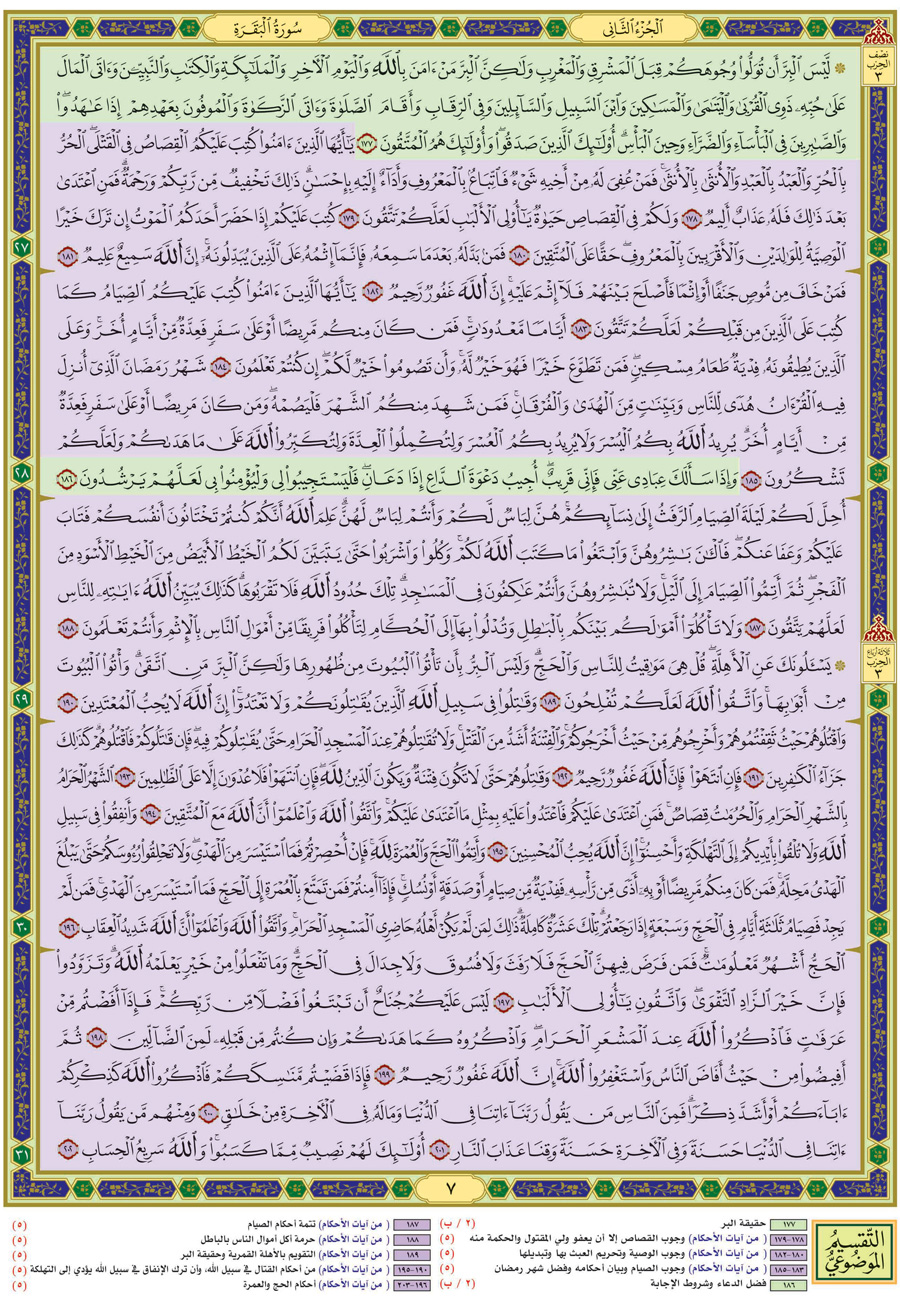 الجُزْءُ الثَّانِي
سُورَةُ البَقَرَةِ
نصف الحزب ٣
۞ لَّيْسَ الْبِرَّ أَن تُوَلُّوا وُجُوهَكُمْ قِبَلَ الْمَشْرِقِ وَالْمَغْرِبِ وَلَٰكِنَّ الْبِرَّ مَنْ ءَامَنَ بِاللَّهِ وَالْيَوْمِ الْأَخِرِ وَالْمَلَٰٓئِكَةِ وَالْكِتَٰبِ وَالنَّبِيِّۦنَ وَءَاتَى الْمَالَ
عَلَىٰ حُبِّهِۦ ذَوِي الْقُرْبَىٰ وَالْيَتَٰمَىٰ وَالْمَسَٰكِينَ وَابْنَ السَّبِيلِ وَالسَّآئِلِينَ وَفِي الرِّقَابِ وَأَقَامَ الصَّلَوٰةَ وَءَاتَى الزَّكَوٰةَ وَالْمُوفُونَ بِعَهْدِهِمْ إِذَا عَٰهَدُوا
وَالصَّٰبِرِينَ فِي الْبَأْسَآءِ وَالضَّرَّآءِ وَحِينَ الْبَأْسِ أُولَٰٓئِكَ الَّذِينَ صَدَقُوا وَأُولَٰٓئِكَ هُمُ الْمُتَّقُونَ ١٧٧ يَٰٓأَيُّهَا الَّذِينَ ءَامَنُوا كُتِبَ عَلَيْكُمُ الْقِصَاصُ فِي الْقَتْلَى الْحُرُّ
بِالْحُرِّ وَالْعَبْدُ بِالْعَبْدِ وَالْأُنثَىٰ بِالْأُنثَىٰ فَمَنْ عُفِيَ لَهُۥ مِنْ أَخِيهِ شَيْءٌ فَاتِّبَاعٌ بِالْمَعْرُوفِ وَأَدَآءٌ إِلَيْهِ بِإِحْسَٰنٍ ذَٰلِكَ تَخْفِيفٌ مِّن رَّبِّكُمْ وَرَحْمَةٌ فَمَنِ اعْتَدَىٰ
بَعْدَ ذَٰلِكَ فَلَهُۥ عَذَابٌ أَلِيمٌ ١٧٨ وَلَكُمْ فِي الْقِصَاصِ حَيَوٰةٌ يَٰٓأُولِي الْأَلْبَٰبِ لَعَلَّكُمْ تَتَّقُونَ ١٧٩ كُتِبَ عَلَيْكُمْ إِذَا حَضَرَ أَحَدَكُمُ الْمَوْتُ إِن تَرَكَ خَيْرًا
الْوَصِيَّةُ لِلْوَٰلِدَيْنِ وَالْأَقْرَبِينَ بِالْمَعْرُوفِ حَقًّا عَلَى الْمُتَّقِينَ ١٨٠ فَمَنۢ بَدَّلَهُۥ بَعْدَمَا سَمِعَهُۥ فَإِنَّمَآ إِثْمُهُۥ عَلَى الَّذِينَ يُبَدِّلُونَهُۥٓ إِنَّ اللَّهَ سَمِيعٌ عَلِيمٌ ١٨١
٢٧
فَمَنْ خَافَ مِن مُّوصٍ جَنَفًا أَوْ إِثْمًا فَأَصْلَحَ بَيْنَهُمْ فَلَآ إِثْمَ عَلَيْهِ إِنَّ اللَّهَ غَفُورٌ رَّحِيمٌ ١٨٢ يَٰٓأَيُّهَا الَّذِينَ ءَامَنُوا كُتِبَ عَلَيْكُمُ الصِّيَامُ كَمَا
كُتِبَ عَلَى الَّذِينَ مِن قَبْلِكُمْ لَعَلَّكُمْ تَتَّقُونَ ١٨٣ أَيَّامًا مَّعْدُودَٰتٍ فَمَن كَانَ مِنكُم مَّرِيضًا أَوْ عَلَىٰ سَفَرٍ فَعِدَّةٌ مِّنْ أَيَّامٍ أُخَرَ وَعَلَى
الَّذِينَ يُطِيقُونَهُۥ فِدْيَةٌ طَعَامُ مِسْكِينٍ فَمَن تَطَوَّعَ خَيْرًا فَهُوَ خَيْرٌ لَّهُۥ وَأَن تَصُومُوا خَيْرٌ لَّكُمْ إِن كُنتُمْ تَعْلَمُونَ ١٨٤ شَهْرُ رَمَضَانَ الَّذِيٓ أُنزِلَ
فِيهِ الْقُرْءَانُ هُدًى لِّلنَّاسِ وَبَيِّنَٰتٍ مِّنَ الْهُدَىٰ وَالْفُرْقَانِ فَمَن شَهِدَ مِنكُمُ الشَّهْرَ فَلْيَصُمْهُ وَمَن كَانَ مَرِيضًا أَوْ عَلَىٰ سَفَرٍ فَعِدَّةٌ
مِّنْ أَيَّامٍ أُخَرَ يُرِيدُ اللَّهُ بِكُمُ الْيُسْرَ وَلَا يُرِيدُ بِكُمُ الْعُسْرَ وَلِتُكْمِلُوا الْعِدَّةَ وَلِتُكَبِّرُوا اللَّهَ عَلَىٰ مَا هَدَىٰكُمْ وَلَعَلَّكُمْ
تَشْكُرُونَ ١٨٥ وَإِذَا سَأَلَكَ عِبَادِي عَنِّي فَإِنِّي قَرِيبٌ أُجِيبُ دَعْوَةَ الدَّاعِ إِذَا دَعَانِ فَلْيَسْتَجِيبُوا لِي وَلْيُؤْمِنُوا بِي لَعَلَّهُمْ يَرْشُدُونَ ١٨٦
٢٨
أُحِلَّ لَكُمْ لَيْلَةَ الصِّيَامِ الرَّفَثُ إِلَىٰ نِسَآئِكُمْ هُنَّ لِبَاسٌ لَّكُمْ وَأَنتُمْ لِبَاسٌ لَّهُنَّ عَلِمَ اللَّهُ أَنَّكُمْ كُنتُمْ تَخْتَانُونَ أَنفُسَكُمْ فَتَابَ
عَلَيْكُمْ وَعَفَا عَنكُمْ فَالْـَٰٔنَ بَٰشِرُوهُنَّ وَابْتَغُوا مَا كَتَبَ اللَّهُ لَكُمْ وَكُلُوا وَاشْرَبُوا حَتَّىٰ يَتَبَيَّنَ لَكُمُ الْخَيْطُ الْأَبْيَضُ مِنَ الْخَيْطِ الْأَسْوَدِ مِنَ
الْفَجْرِ ثُمَّ أَتِمُّوا الصِّيَامَ إِلَى الَّيْلِ وَلَا تُبَٰشِرُوهُنَّ وَأَنتُمْ عَٰكِفُونَ فِي الْمَسَٰجِدِ تِلْكَ حُدُودُ اللَّهِ فَلَا تَقْرَبُوهَا كَذَٰلِكَ يُبَيِّنُ اللَّهُ ءَايَٰتِهِۦ لِلنَّاسِ
لَعَلَّهُمْ يَتَّقُونَ ١٨٧ وَلَا تَأْكُلُوٓا أَمْوَٰلَكُم بَيْنَكُم بِالْبَٰطِلِ وَتُدْلُوا بِهَآ إِلَى الْحُكَّامِ لِتَأْكُلُوا فَرِيقًا مِّنْ أَمْوَٰلِ النَّاسِ بِالْإِثْمِ وَأَنتُمْ تَعْلَمُونَ ١٨٨
ثلاثة أرباع الحزب ٣
۞ يَسْـَٔلُونَكَ عَنِ الْأَهِلَّةِ قُلْ هِيَ مَوَٰقِيتُ لِلنَّاسِ وَالْحَجِّ وَلَيْسَ الْبِرُّ بِأَن تَأْتُوا الْبُيُوتَ مِن ظُهُورِهَا وَلَٰكِنَّ الْبِرَّ مَنِ اتَّقَىٰ وَأْتُوا الْبُيُوتَ
مِنْ أَبْوَٰبِهَا وَاتَّقُوا اللَّهَ لَعَلَّكُمْ تُفْلِحُونَ ١٨٩ وَقَٰتِلُوا فِي سَبِيلِ اللَّهِ الَّذِينَ يُقَٰتِلُونَكُمْ وَلَا تَعْتَدُوٓا إِنَّ اللَّهَ لَا يُحِبُّ الْمُعْتَدِينَ ١٩٠
٢٩
وَاقْتُلُوهُمْ حَيْثُ ثَقِفْتُمُوهُمْ وَأَخْرِجُوهُم مِّنْ حَيْثُ أَخْرَجُوكُمْ وَالْفِتْنَةُ أَشَدُّ مِنَ الْقَتْلِ وَلَا تُقَٰتِلُوهُمْ عِندَ الْمَسْجِدِ الْحَرَامِ حَتَّىٰ يُقَٰتِلُوكُمْ فِيهِ فَإِن قَٰتَلُوكُمْ فَاقْتُلُوهُمْ كَذَٰلِكَ
جَزَآءُ الْكَٰفِرِينَ ١٩١ فَإِنِ انتَهَوْا فَإِنَّ اللَّهَ غَفُورٌ رَّحِيمٌ ١٩٢ وَقَٰتِلُوهُمْ حَتَّىٰ لَا تَكُونَ فِتْنَةٌ وَيَكُونَ الدِّينُ لِلَّهِ فَإِنِ انتَهَوْا فَلَا عُدْوَٰنَ إِلَّا عَلَى الظَّٰلِمِينَ ١٩٣ الشَّهْرُ الْحَرَامُ
بِالشَّهْرِ الْحَرَامِ وَالْحُرُمَٰتُ قِصَاصٌ فَمَنِ اعْتَدَىٰ عَلَيْكُمْ فَاعْتَدُوا عَلَيْهِ بِمِثْلِ مَا اعْتَدَىٰ عَلَيْكُمْ وَاتَّقُوا اللَّهَ وَاعْلَمُوٓا أَنَّ اللَّهَ مَعَ الْمُتَّقِينَ ١٩٤ وَأَنفِقُوا فِي سَبِيلِ
اللَّهِ وَلَا تُلْقُوا بِأَيْدِيكُمْ إِلَى التَّهْلُكَةِ وَأَحْسِنُوٓا إِنَّ اللَّهَ يُحِبُّ الْمُحْسِنِينَ ١٩٥ وَأَتِمُّوا الْحَجَّ وَالْعُمْرَةَ لِلَّهِ فَإِنْ أُحْصِرْتُمْ فَمَا اسْتَيْسَرَ مِنَ الْهَدْيِ وَلَا تَحْلِقُوا رُءُوسَكُمْ حَتَّىٰ يَبْلُغَ
الْهَدْيُ مَحِلَّهُۥ فَمَن كَانَ مِنكُم مَّرِيضًا أَوْ بِهِۦٓ أَذًى مِّن رَّأْسِهِۦ فَفِدْيَةٌ مِّن صِيَامٍ أَوْ صَدَقَةٍ أَوْ نُسُكٍ فَإِذَآ أَمِنتُمْ فَمَن تَمَتَّعَ بِالْعُمْرَةِ إِلَى الْحَجِّ فَمَا اسْتَيْسَرَ مِنَ الْهَدْيِ فَمَن لَّمْ
يَجِدْ فَصِيَامُ ثَلَٰثَةِ أَيَّامٍ فِي الْحَجِّ وَسَبْعَةٍ إِذَا رَجَعْتُمْ تِلْكَ عَشَرَةٌ كَامِلَةٌ ذَٰلِكَ لِمَن لَّمْ يَكُنْ أَهْلُهُۥ حَاضِرِي الْمَسْجِدِ الْحَرَامِ وَاتَّقُوا اللَّهَ وَاعْلَمُوٓا أَنَّ اللَّهَ شَدِيدُ الْعِقَابِ ١٩٦
٣٠
الْحَجُّ أَشْهُرٌ مَّعْلُومَٰتٌ فَمَن فَرَضَ فِيهِنَّ الْحَجَّ فَلَا رَفَثَ وَلَا فُسُوقَ وَلَا جِدَالَ فِي الْحَجِّ وَمَا تَفْعَلُوا مِنْ خَيْرٍ يَعْلَمْهُ اللَّهُ وَتَزَوَّدُوا
فَإِنَّ خَيْرَ الزَّادِ التَّقْوَىٰ وَاتَّقُونِ يَٰٓأُولِي الْأَلْبَٰبِ ١٩٧ لَيْسَ عَلَيْكُمْ جُنَاحٌ أَن تَبْتَغُوا فَضْلًا مِّن رَّبِّكُمْ فَإِذَآ أَفَضْتُم مِّنْ
عَرَفَٰتٍ فَاذْكُرُوا اللَّهَ عِندَ الْمَشْعَرِ الْحَرَامِ وَاذْكُرُوهُ كَمَا هَدَىٰكُمْ وَإِن كُنتُم مِّن قَبْلِهِۦ لَمِنَ الضَّآلِّينَ ١٩٨ ثُمَّ
أَفِيضُوا مِنْ حَيْثُ أَفَاضَ النَّاسُ وَاسْتَغْفِرُوا اللَّهَ إِنَّ اللَّهَ غَفُورٌ رَّحِيمٌ ١٩٩ فَإِذَا قَضَيْتُم مَّنَٰسِكَكُمْ فَاذْكُرُوا اللَّهَ كَذِكْرِكُمْ
ءَابَآءَكُمْ أَوْ أَشَدَّ ذِكْرًا فَمِنَ النَّاسِ مَن يَقُولُ رَبَّنَآ ءَاتِنَا فِي الدُّنْيَا وَمَا لَهُۥ فِي الْأَخِرَةِ مِنْ خَلَٰقٍ ٢٠٠ وَمِنْهُم مَّن يَقُولُ رَبَّنَآ
ءَاتِنَا فِي الدُّنْيَا حَسَنَةً وَفِي الْأَخِرَةِ حَسَنَةً وَقِنَا عَذَابَ النَّارِ ٢٠١ أُولَٰٓئِكَ لَهُمْ نَصِيبٌ مِّمَّا كَسَبُوا وَاللَّهُ سَرِيعُ الْحِسَابِ ٢٠٢
٣١
٧
التَّقْسِيمُ المَوْضُوعِيُّ
١٧٧ حقيقة البر (٢ / ب)
١٧٨-١٧٩ ( من آيات الأحكام) وجوب القصاص إلا أن يعفو ولي المقتول والحكمة منه (٥)
١٨٠-١٨٢ ( من آيات الأحكام) وجوب الوصية وتحريم العبث بها وتبديلها (٥)
١٨٣-١٨٥ ( من آيات الأحكام) وجوب الصيام وبيان أحكامه وفضل شهر رمضان (٥)
١٨٦ فضل الدعاء وشروط الإجابة (٢ / ب)
١٨٧ ( من آيات الأحكام) تتمة أحكام الصيام (٥)
١٨٨ ( من آيات الأحكام) حرمة أكل أموال الناس بالباطل (٥)
١٨٩ ( من آيات الأحكام) التقويم بالأهلة القمرية وحقيقة البر (٥)
١٩٠-١٩٥ ( من آيات الأحكام) من أحكام القتال في سبيل الله، وأن ترك الإنفاق في سبيل الله يؤدي إلى التهلكة (٥)
١٩٦-٢٠٣ ( من آيات الأحكام) أحكام الحج والعمرة (٥)